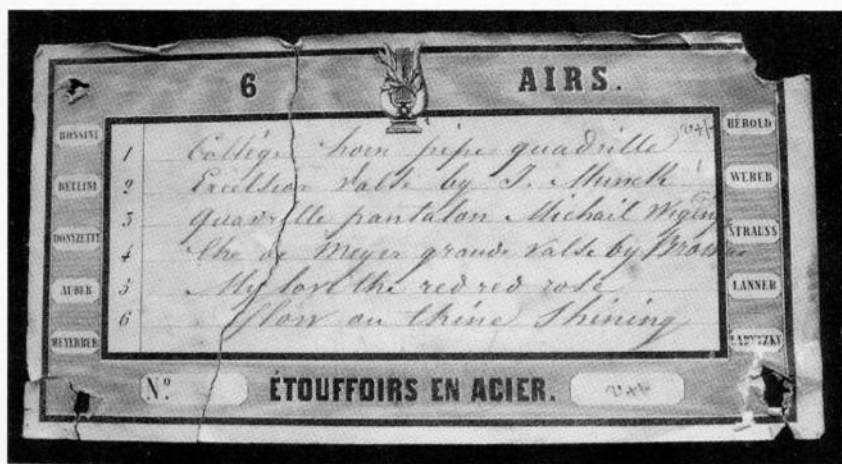 6 AIRS.
ROSSINI
BELLINI
DONYZETTI
AUBER
MEYERBER
1 Collége horn pipe quadrille
2 Excelsior Valse by J. Munck
3 quadrille pantalon Michail
4 de Meyer grande Valse by
5 My love the red red rose
6 flow on thine Shining
HEROLD
WEBER
STRAUSS
LANNER
LABYTZKY
Nº
ÉTOUFFOIRS EN ACIER.